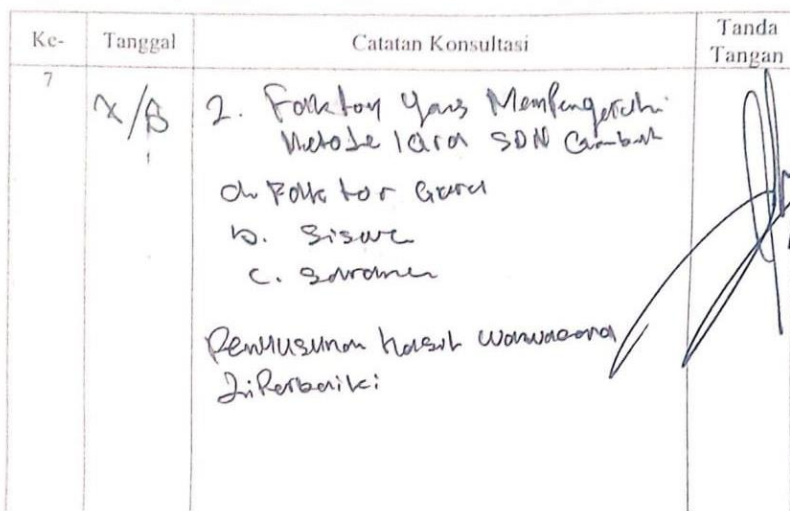 Ke- Tanggal Catatan Konsultasi Tanda Tangan
7
2. Faktor yang Mempengaruhi
Metode SDN
a. Faktor Guru
b. Siswa
c. Sarana
Penyusunan hasil wawancara
diperbaiki